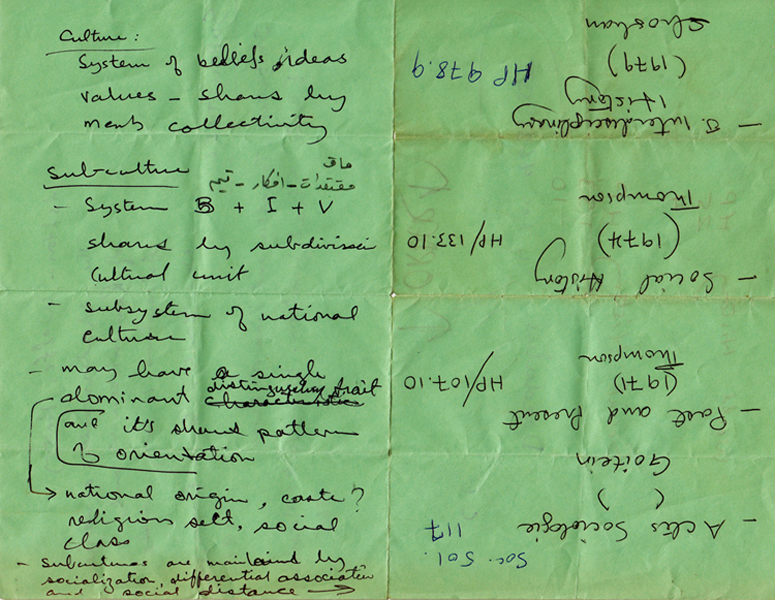 Culture:
System of beliefs, ideas
values - shares by
memb collectivity
Subculture
معتقدات - افكار - قيم
- System B + I + V
shares by subdivision
cultural unit
- subsystem of national
culture
- may have a single
dominant distinguishing trait
characteristics
and it's shared pattern
of orientation
national origin, caste?
religious sect, social
class
- Subcultures are maintained by
socialization, differential association
and social distance →
- Actes Sociologie
Soc. Sol.
117
( )
Goitein
- Past and Present
(1971) HP/107.10
Thompson
- Social History
(1974) HP/133.10
Thompson
- J. Interdisciplinary
History
(1979) HP 978.9
Shoshan